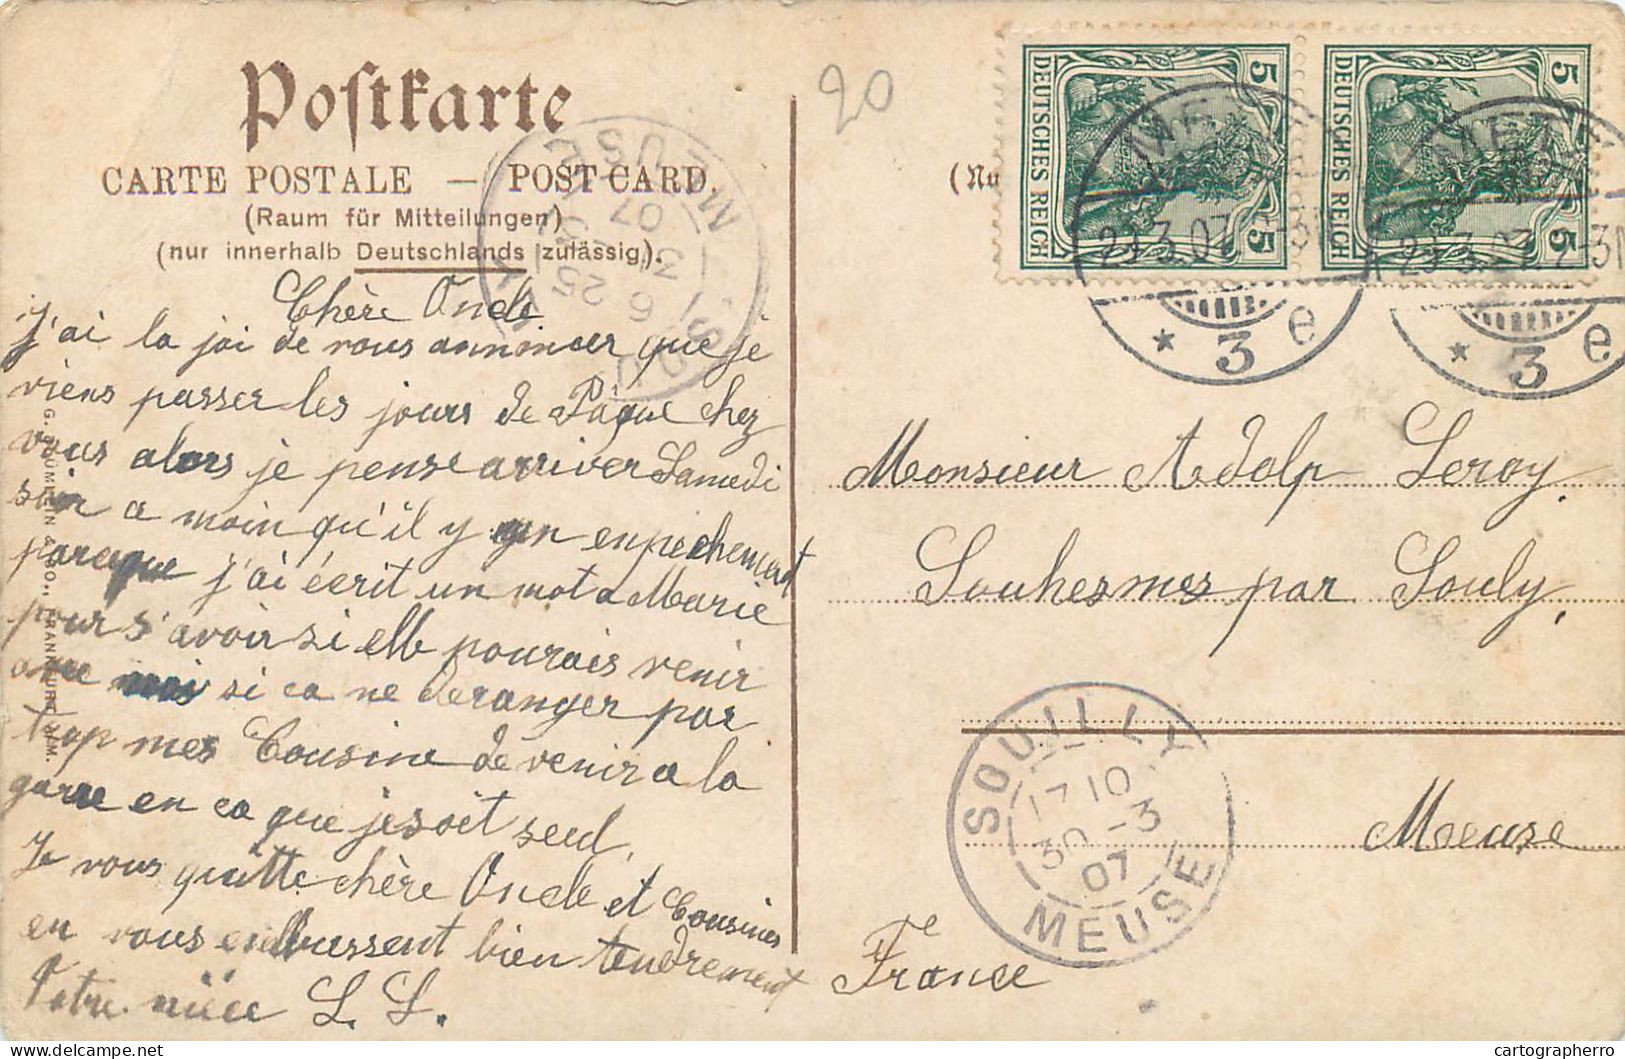 Postkarte
CARTE POSTALE — POST-CARD.
(Raum für Mitteilungen)
(nur innerhalb Deutschlands zulässig).
20
DEUTSCHES REICH 5
DEUTSCHES REICH 5
METZ
29.3.07. 2-3N
* 3 e
METZ
29.3.07. 2-3N
* 3 e
SOUILLY
6 25
31 - 3
07
MEUSE
Chère Oncle
J'ai la joi de vous annoncer que je
viens passer les jours de Pâque chez
vous alors je pense arriver Samedi
soir a moin qu'il y en enpechement
parceque j'ai écrit un mot a Marie
pour s'avoir si elle pourais venir
avec moi si ca ne deranger par
trop mes Cousine de venir a la
garre en ca que je soit seul.
Je vous quitte chère Oncle et Cousines
en vous enbrassent bien tendrement
Votre nièce L. L.
Monsieur Adolp Leroy.
Souhesmes par Souly,
Meuse
France
SOUILLY
17 10
30 - 3
07
MEUSE
G. BLÜMLEIN & CO., FRANKFURT A/M.
cartographerro